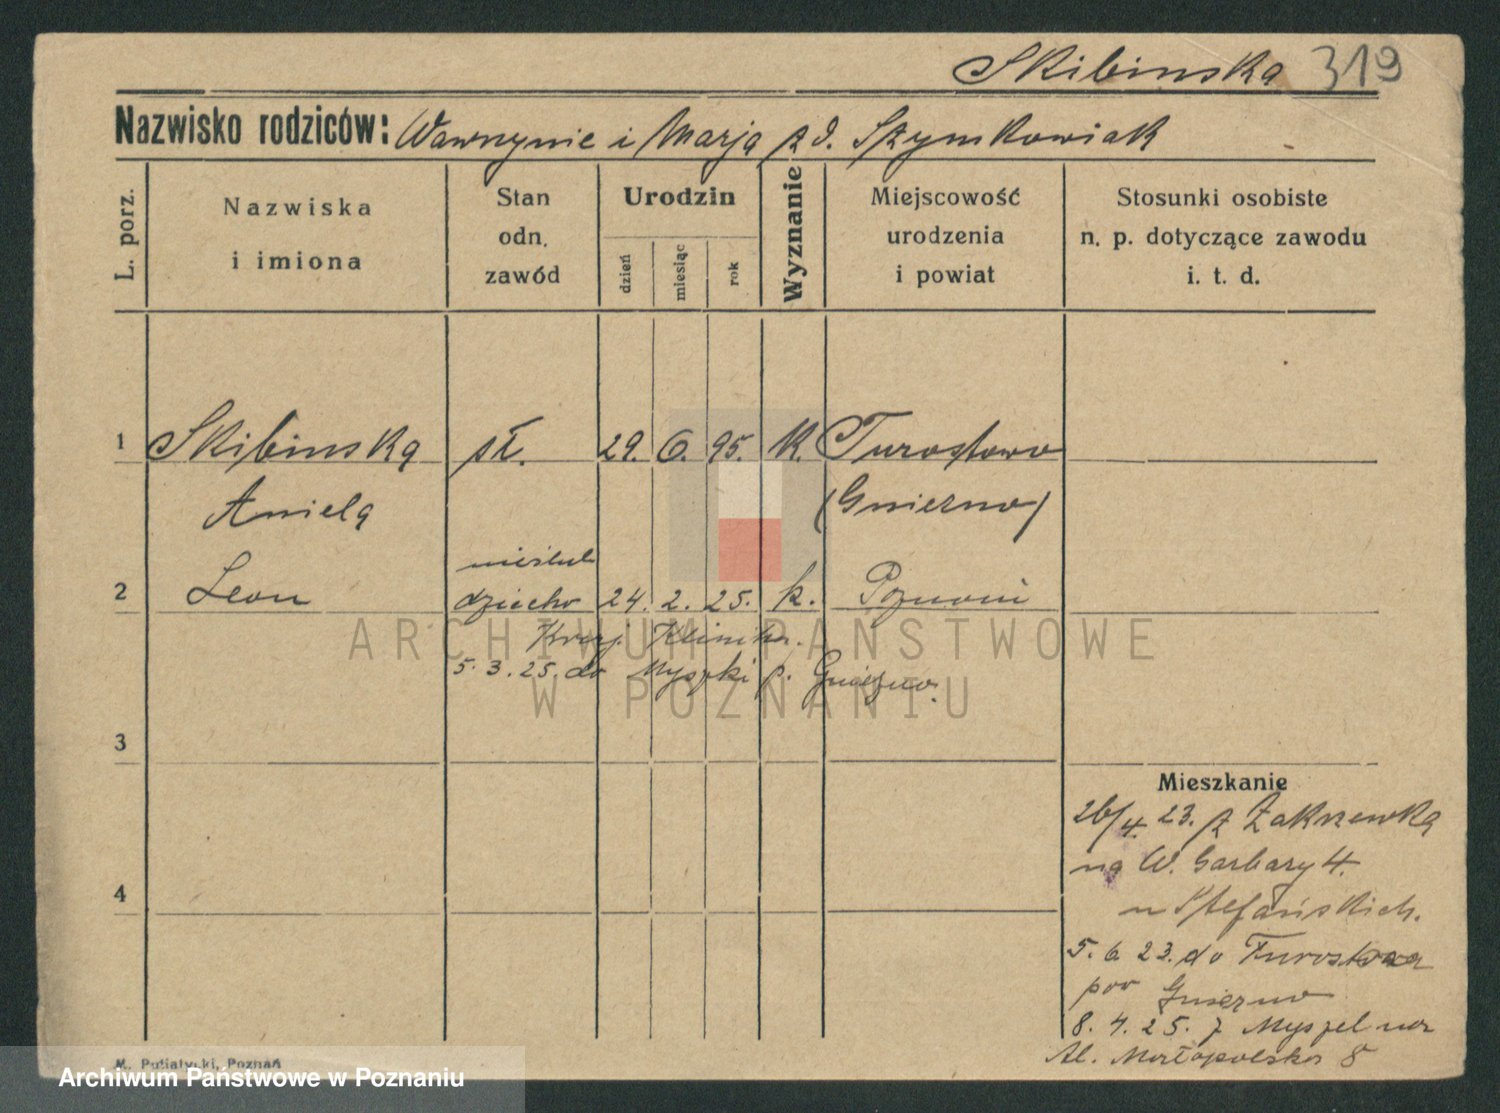 Skibinska 319
Nazwisko rodziców: Wawrzynie i Marja z d. Szymkowiak
L. porz.
Nazwiska
i imiona
Stan
odn.
zawód
Urodzin
dzień
miesiąc
rok
Wyznanie
Miejscowość
urodzenia
i powiat
Stosunki osobiste
n. p. dotyczące zawodu
i. t. d.
1 Skibinska sł. 29. 6. 95. k. Turostowo
Aniela (Gniezno)
nieślub
2 Leon dziecko 24. 2. 25. k. Poznań
Klinika.
5.3.25. do Myszki p. Gniezno.
3
4
Mieszkanie
26/4. 23. z Zakrzewka
na W. Garbary 4.
u Stefańskich.
5. 6 23. do Turostowa
pow Gniezno
8. 4. 25. z na
Al. Małopolska 8
M. Putiatycki, Poznań
ARCHIWUM PAŃSTWOWE
W POZNANIU
Archiwum Państwowe w Poznaniu